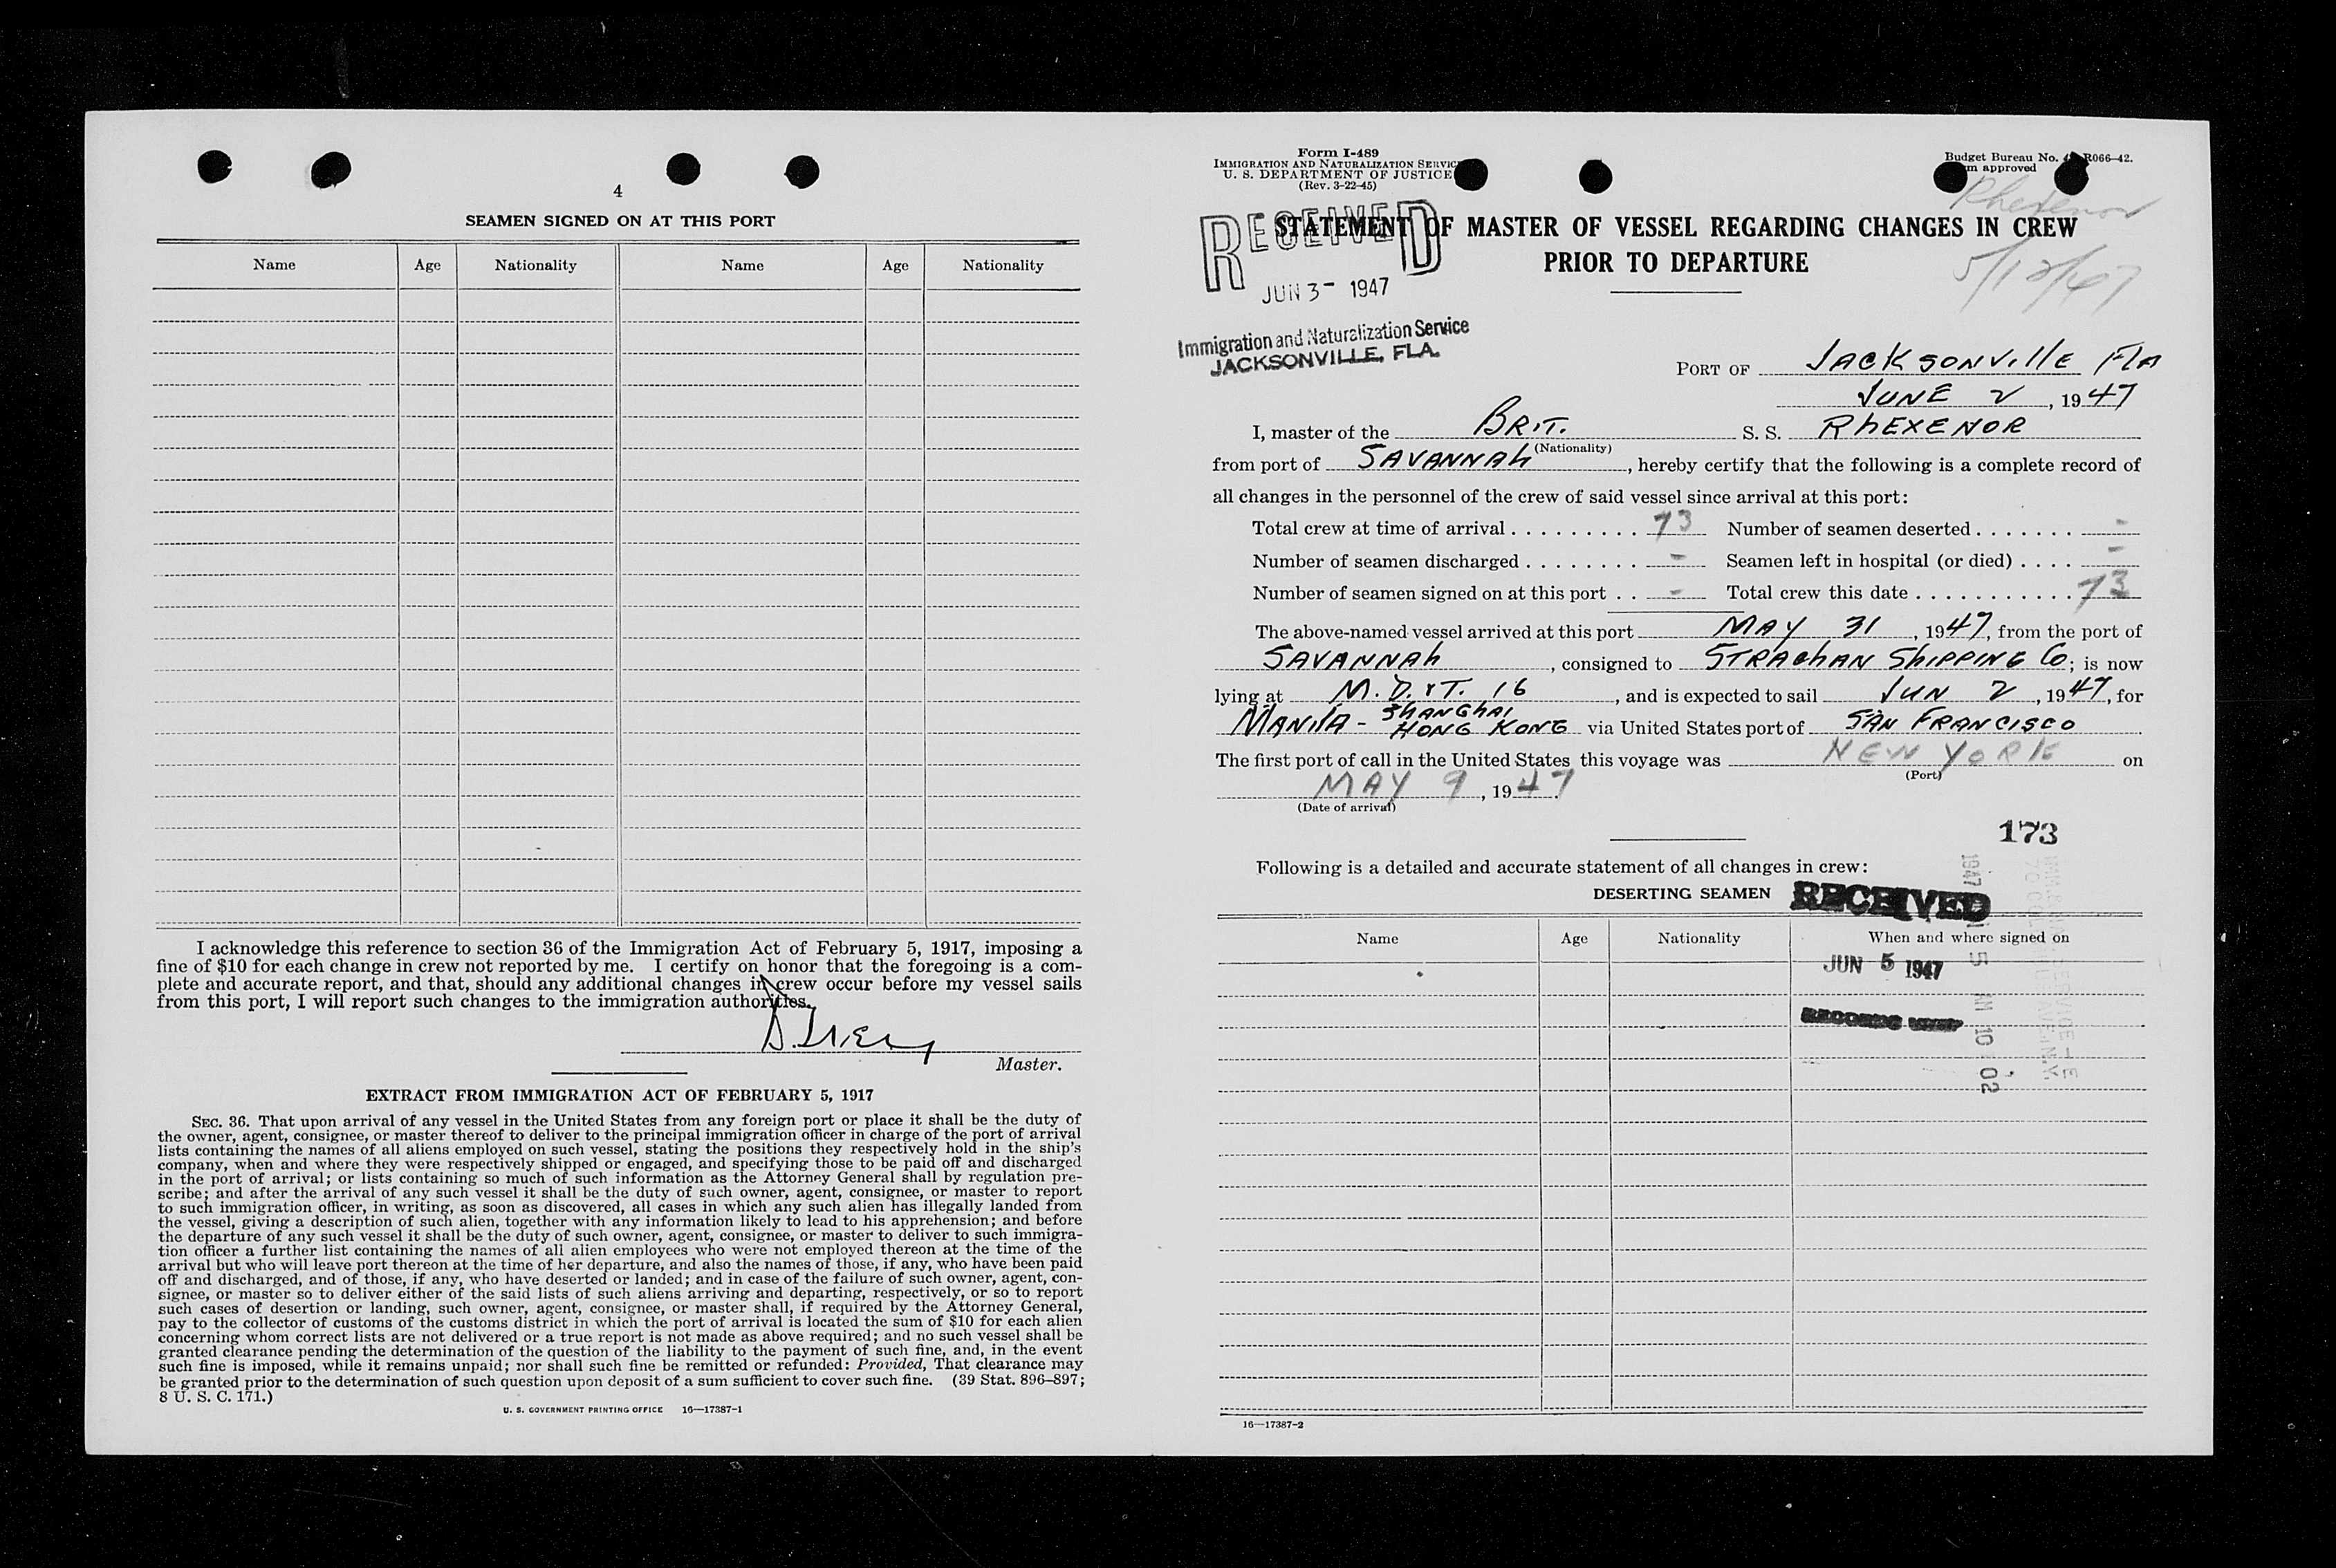 4
SEAMEN SIGNED ON AT THIS PORT
Name Age Nationality Name Age Nationality
I acknowledge this reference to section 36 of the Immigration Act of February 5, 1917, imposing a
fine of $10 for each change in crew not reported by me. I certify on honor that the foregoing is a com-
plete and accurate report, and that, should any additional changes in crew occur before my vessel sails
from this port, I will report such changes to the immigration authorities.
Master.
EXTRACT FROM IMMIGRATION ACT OF FEBRUARY 5, 1917
SEC. 36. That upon arrival of any vessel in the United States from any foreign port or place it shall be the duty of
the owner, agent, consignee, or master thereof to deliver to the principal immigration officer in charge of the port of arrival
lists containing the names of all aliens employed on such vessel, stating the positions they respectively hold in the ship's
company, when and where they were respectively shipped or engaged, and specifying those to be paid off and discharged
in the port of arrival; or lists containing so much of such information as the Attorney General shall by regulation pre-
scribe; and after the arrival of any such vessel it shall be the duty of such owner, agent, consignee, or master to report
to such immigration officer, in writing, as soon as discovered, all cases in which any such alien has illegally landed from
the vessel, giving a description of such alien, together with any information likely to lead to his apprehension; and before
the departure of any such vessel it shall be the duty of such owner, agent, consignee, or master to deliver to such immigra-
tion officer a further list containing the names of all alien employees who were not employed thereon at the time of the
arrival but who will leave port thereon at the time of her departure, and also the names of those, if any, who have been paid
off and discharged, and of those, if any, who have deserted or landed; and in case of the failure of such owner, agent, con-
signee, or master so to deliver either of the said lists of such aliens arriving and departing, respectively, or so to report
such cases of desertion or landing, such owner, agent, consignee, or master shall, if required by the Attorney General,
pay to the collector of customs of the customs district in which the port of arrival is located the sum of $10 for each alien
concerning whom correct lists are not delivered or a true report is not made as above required; and no such vessel shall be
granted clearance pending the determination of the question of the liability to the payment of such fine, and, in the event
such fine is imposed, while it remains unpaid; nor shall such fine be remitted or refunded: Provided, That clearance may
be granted prior to the determination of such question upon deposit of a sum sufficient to cover such fine. (39 Stat. 896–897;
8 U. S. C. 171.)
U. S. GOVERNMENT PRINTING OFFICE 16—17387-1
Form I-489
IMMIGRATION AND NATURALIZATION SERVICE
U. S. DEPARTMENT OF JUSTICE
(Rev. 3-22-45)
Budget Bureau No. R066-42.
approved
Rhexenor
5/12/47
STATEMENT OF MASTER OF VESSEL REGARDING CHANGES IN CREW
PRIOR TO DEPARTURE
RECEIVED
JUN 3- 1947
Immigration and Naturalization Service
JACKSONVILLE, FLA.
PORT OF JACKSONVIllE FlA
JUNE 2, 1947
I, master of the BRIT. S. S. RhEXENOR
(Nationality)
from port of SAVANNAh, hereby certify that the following is a complete record of
all changes in the personnel of the crew of said vessel since arrival at this port:
Total crew at time of arrival . . . . . . . . . 73 Number of seamen deserted . . . . . . . -
Number of seamen discharged . . . . . . . . - Seamen left in hospital (or died) . . . . -
Number of seamen signed on at this port . . - Total crew this date . . . . . . . . . . . . 73
The above-named vessel arrived at this port MAY 31, 1947, from the port of
SAVANNAh, consigned to STRAChAN ShIPPING Co; is now
lying at M. D. & T. 16, and is expected to sail JUN 2, 1947, for
MANIlA - ShANGhAI
HONG KONG via United States port of SAN FRANCISCO
The first port of call in the United States this voyage was NEW YORK on
(Port)
MAY 9, 1947
(Date of arrival)
173
Following is a detailed and accurate statement of all changes in crew:
DESERTING SEAMEN
RECEIVED
Name Age Nationality When and where signed on
JUN 5 1947
1947 5 AM 10 02
16—17387-2